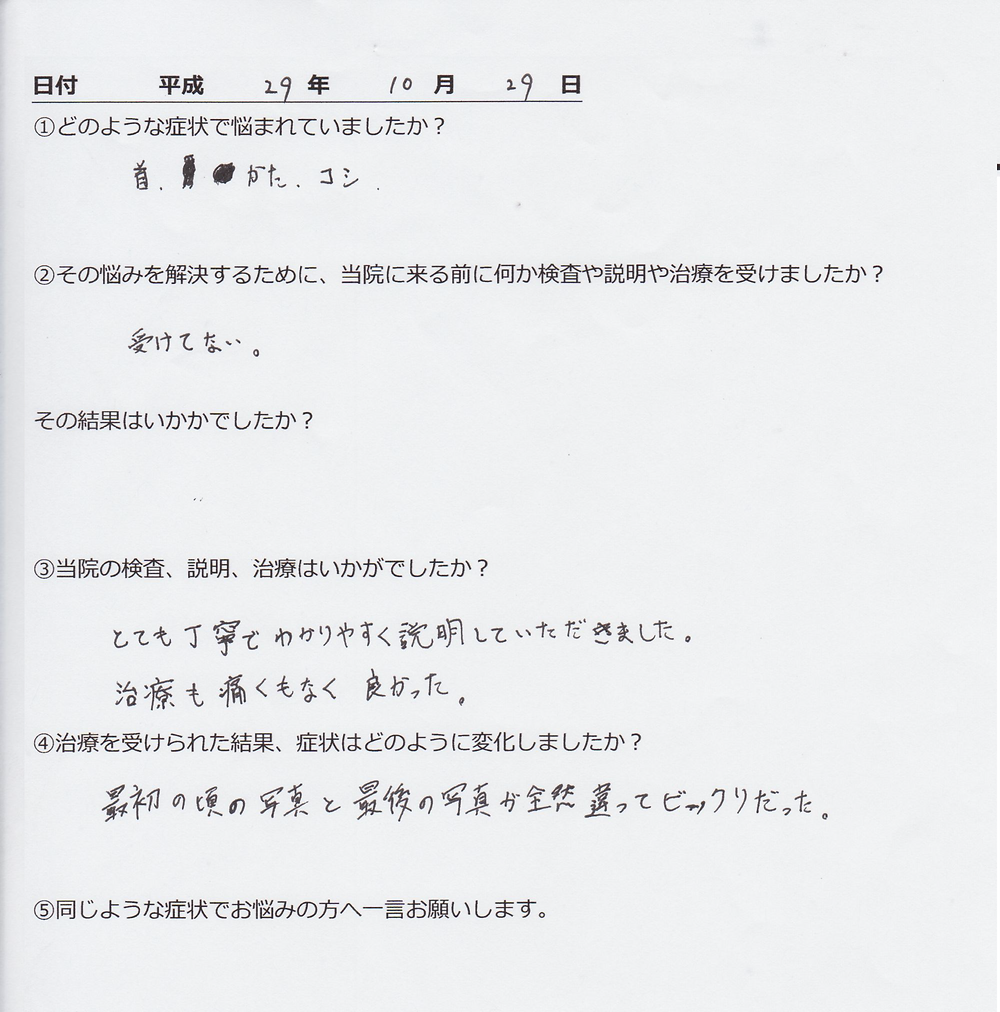 日付 平成 29年 10月 29日
①どのような症状で悩まれていましたか？
首、かた、コシ、
②その悩みを解決するために、当院に来る前に何か検査や説明や治療を受けましたか？
受けてない。
その結果はいかかでしたか？
③当院の検査、説明、治療はいかがでしたか？
とても丁寧でわかりやすく説明していただきました。
治療も痛くもなく良かった。
④治療を受けられた結果、症状はどのように変化しましたか？
最初の頃の写真と最後の写真が全然違ってビックリだった。
⑤同じような症状でお悩みの方へ一言お願いします。